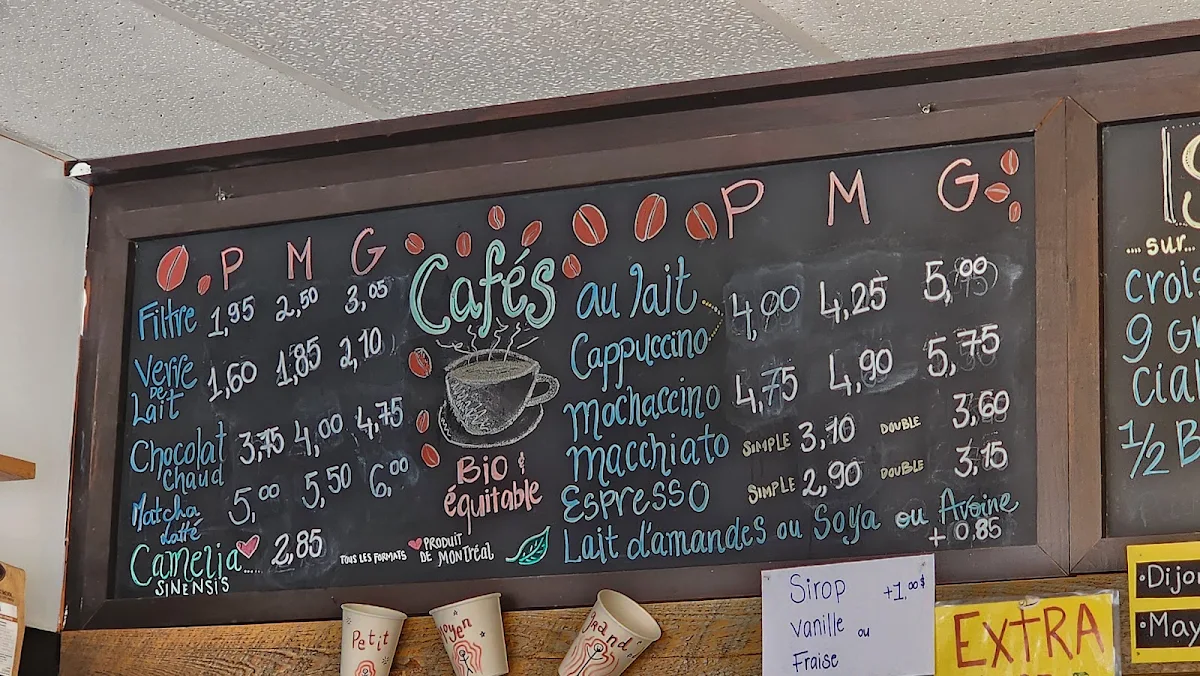 P M G
Filtre 1,95 2,50 3,05
Verre de Lait 1,60 1,85 2,10
Chocolat chaud 3,75 4,00 4,75
Matcha Latté 5,00 5,50 6,00
Camelia sinensis ..... 2,85
TOUS LES FORMATS
Cafés
Bio & équitable
PRODUIT
DE MONTRÉAL
P M G
au lait
Cappuccino 4,00 4,25 5,00
Mochaccino 4,75 4,90 5,75
Macchiato SIMPLE 3,10 DOUBLE 3,60
Espresso SIMPLE 2,90 DOUBLE 3,15
Lait d'amandes ou Soya ou Avoine
+ 0.85
.... sur...
crois
9 G
Cia
1/2 B
Petit
oyen
Grand
Sirop +1,00$
Vanille ou
Fraise
EXTRA
•Dijo
•May